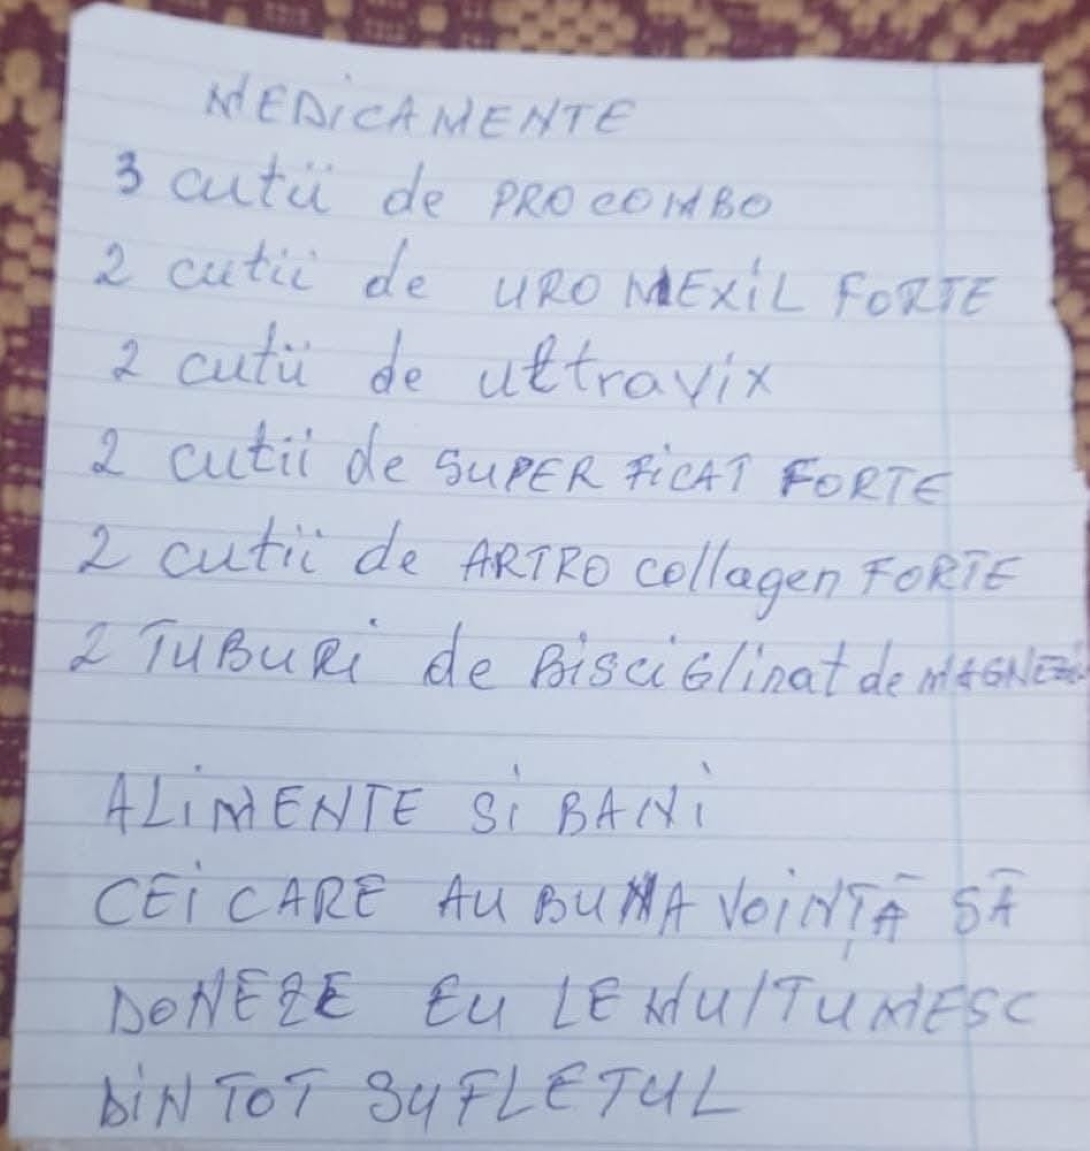 MEDiCAMENTE
3 cutii de PROCOMBO
2 cutii de URO MEXiL FORTE
2 cutii de ultravix
2 cutii de SUPER FiCAT FORTE
2 cutii de ARTRO collagen FORTE
2 TUBURi de BisciGlinat de MAGNEZi
ALiMENTE Si BANi
CEi CARE AU BUNA VOiNȚĂ SĂ
DONEZE EU LE MUlTUMESC
DiN TOT SUFLETUL